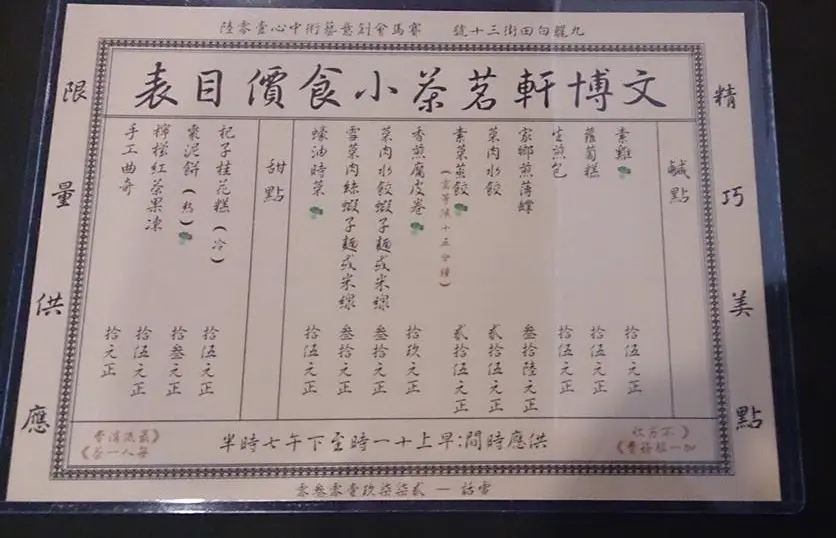 九龍白田街三十號 賽馬會創意藝術中心壹零陸
文博軒茗茶小食價目表
精巧美點
鹹點
素雞 拾伍元正
蘿蔔糕 拾伍元正
生煎包 拾伍元正
家鄉煎薄罉 叁拾陸元正
菜肉水餃 貳拾伍元正
素菜蒸餃 (需等候十五分鐘) 貳拾伍元正
香煎腐皮卷 拾玖元正
菜肉水餃蝦子麵或米線 叁拾元正
雪菜肉絲蝦子麵或米線 叁拾元正
蠔油時菜 拾伍元正
甜點
杞子桂花糕 (冷) 拾伍元正
棗泥餅 (熱) 拾叁元正
檸檬紅茶果凍 拾伍元正
手工曲奇 拾元正
限量供應
《不另收
加一服務費》
供應時間:早上十一時至下午七時半
《最低消費
每人一茶》
電話 — 貳柒柒玖壹零叁零